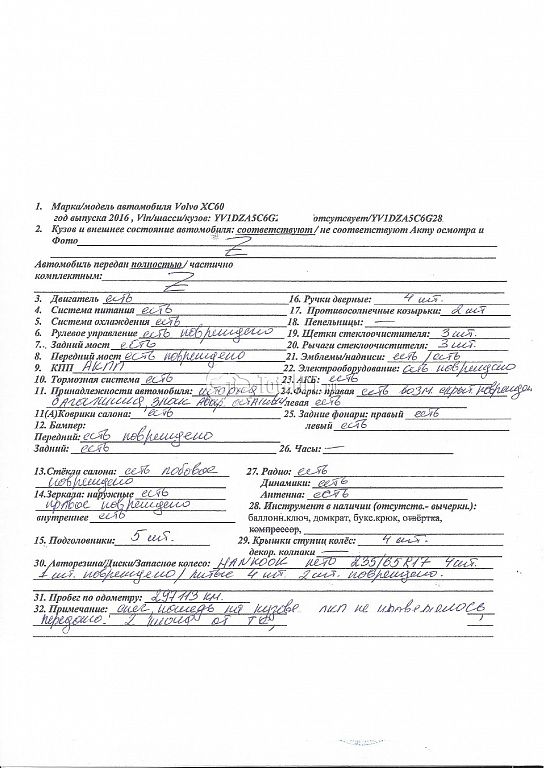 1. Марка/модель автомобиля Volvo XC60
год выпуска 2016 , Vin/шасси/кузов: YV1DZA5C6G2 /отсутсвует/YV1DZA5C6G28
2. Кузов и внешнее состояние автомобиля: соответствуют / не соответствуют Акту осмотра и
Фото Z
Автомобиль передан полностью / частично
комплектным: Z
3. Двигатель есть 16. Ручки дверные: 4 шт.
4. Система питания есть 17. Противосолнечные козырьки: 2 шт
5. Система охлаждения есть 18. Пепельницы: —
6. Рулевое управление есть повреждено 19. Щетки стеклоочистителя: 3 шт.
7. Задний мост есть 20. Рычаги стеклоочистителя: 3 шт.
8. Передний мост есть повреждено 21. Эмблемы/надписи: есть /есть
9. КПП АКПП 22. Электрооборудование: есть повреждено
10. Тормозная система есть 23. АКБ: есть
11. Принадлежности автомобиля: 24.Фары: правая есть возм. скрыт. поврежден
знак /левая есть
11(А)Коврики салона: есть 25. Задние фонари: правый есть
12. Бампер: левый есть
Передний: есть повреждено
Задний: есть 26. Часы: —
13.Стёкла салона: есть лобовое 27. Радио: есть
повреждено Динамики: есть
14.Зеркала: наружные есть Антенна: есть
правое повреждено 28. Инструмент в наличии (отсутств.- вычеркн.):
внутреннее есть баллонн.ключ, домкрат, букс.крюк, отвёртка,
компрессор,
15. Подголовники: 5 шт. 29. Крышки ступиц колёс: 4 шт.
декор. колпаки —
30. Авторезина/Диски/Запасное колесо: HANKOOK лето 235/65 R17 4 шт.
1 шт. повреждено / литые 4 шт. 2 шт. повреждено.
31. Пробег по одометру: 297113 км.
32. Примечание: снег, на кузове ЛКП не
передано. 2 от ТС,